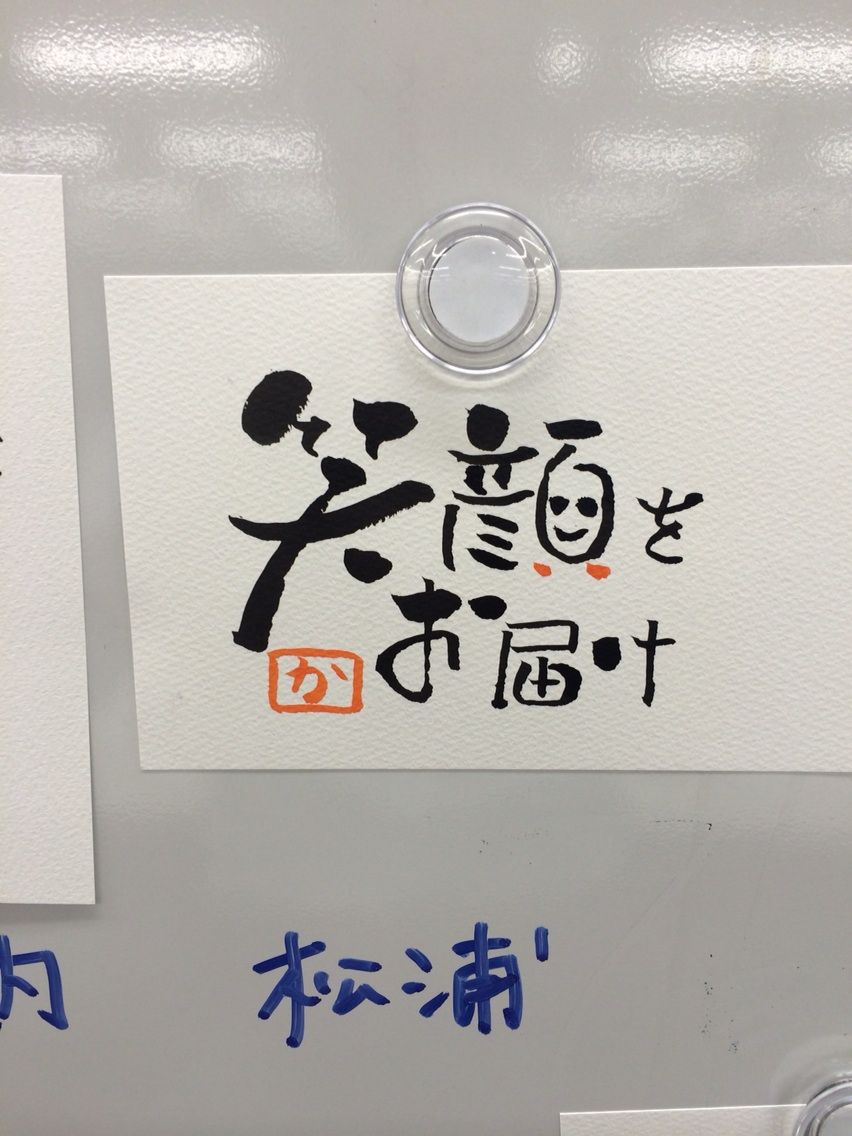 笑顔を
お届け
か
内
松浦